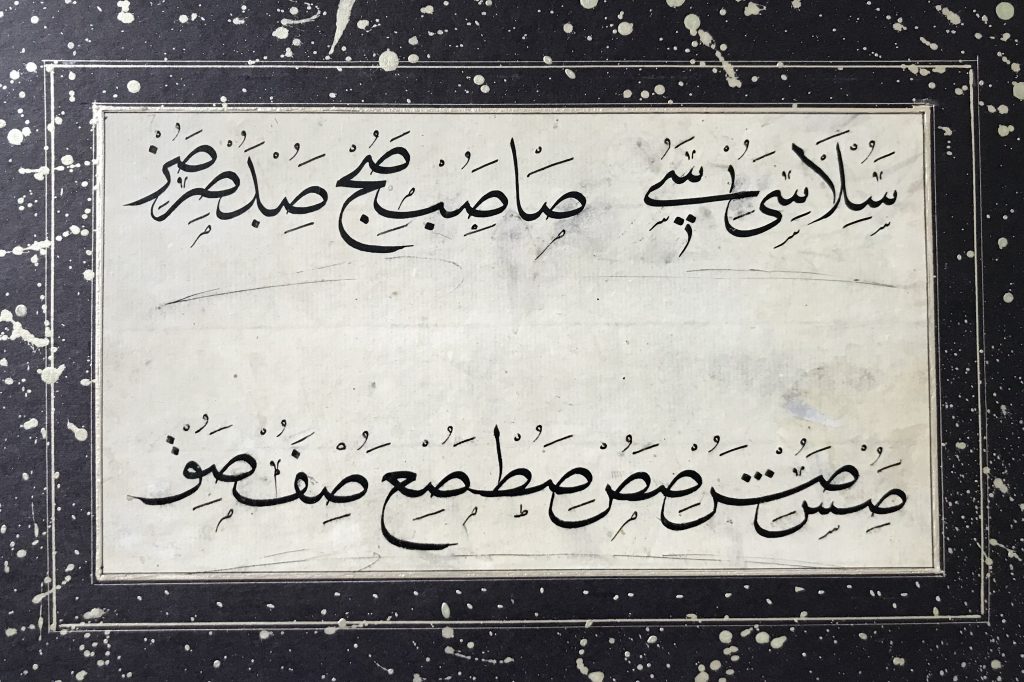 سلا سى سے صا صب صج صد صر صز
صس صش صص صط صع صف صق